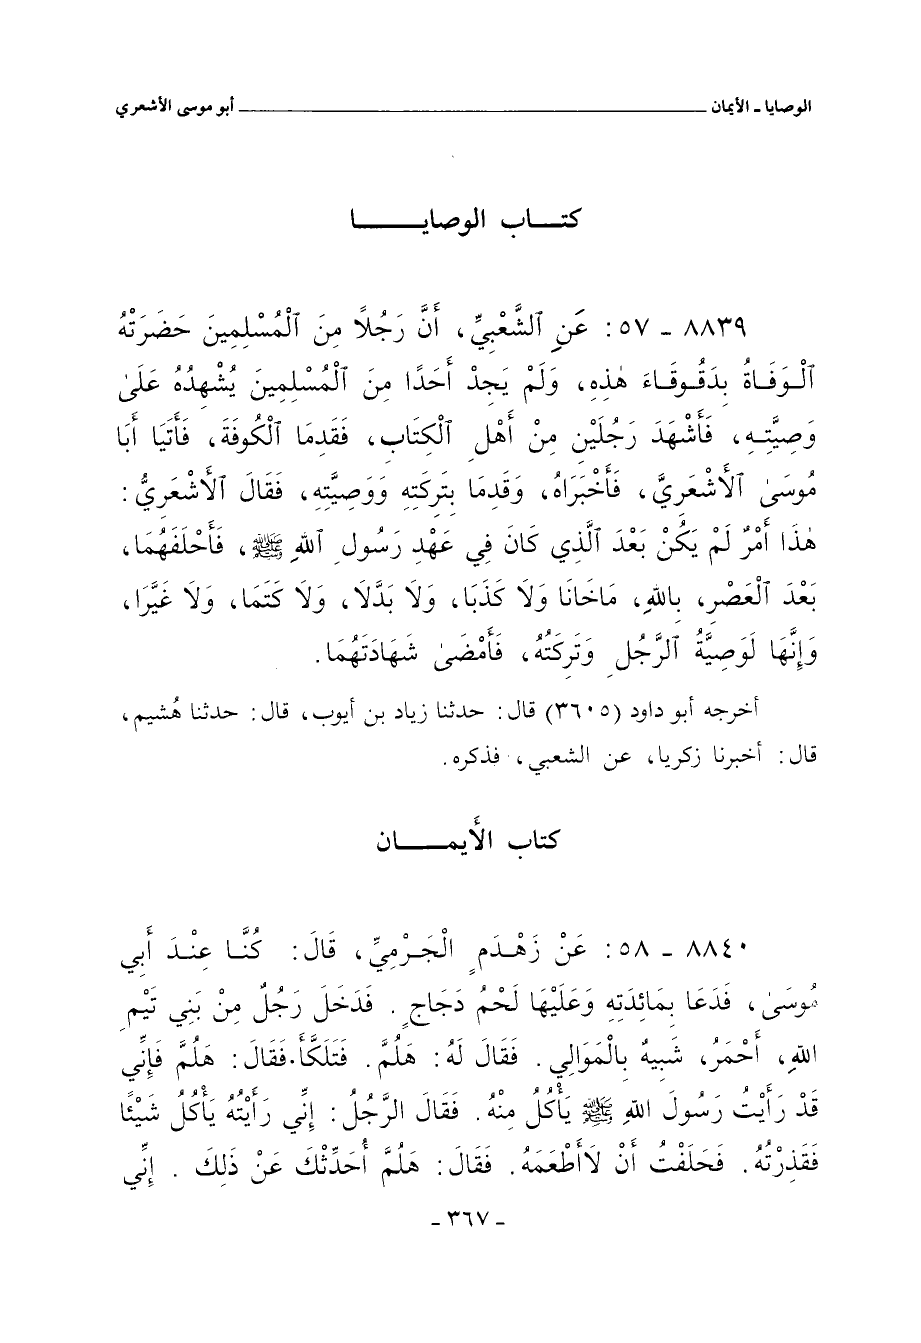 الوصايا - الأيمان ــــــــــــــــــــ أبو موسى الأشعري
كتـــاب الوصايـــــــا
٨٨٣٩ - ٥٧: عَنِ ٱلشَّعْبِيِّ، أَنَّ رَجُلاً مِنَ ٱلْمُسْلِمِينَ حَضَرَتْهُ
ٱلْوَفَاةُ بِدَقُوقَاءَ هٰذِهِ، وَلَمْ يَجِدْ أَحَدًا مِنَ ٱلْمُسْلِمِينَ يُشْهِدُهُ عَلَىٰ
وَصِيَّتِهِ، فَأَشْهَدَ رَجُلَيْنِ مِنْ أَهْلِ ٱلْكِتَابِ، فَقَدِمَا ٱلْكُوفَةَ، فَأَتَيَا أَبَا
مُوسَىٰ ٱلْأَشْعَرِيَّ، فَأَخْبَرَاهُ، وَقَدِمَا بِتَرِكَتِهِ وَوَصِيَّتِهِ، فَقَالَ ٱلْأَشْعَرِيُّ:
هٰذَا أَمْرٌ لَمْ يَكُنْ بَعْدَ ٱلَّذِي كَانَ فِي عَهْدِ رَسُولِ ٱللهِ ﷺ، فَأَحْلَفَهُمَا،
بَعْدَ ٱلْعَصْرِ، بِاللهِ، مَاخَانَا وَلَا كَذَبَا، وَلَا بَدَّلَا، وَلَا كَتَمَا، وَلَا غَيَّرَا،
وَإِنَّهَا لَوَصِيَّةُ ٱلرَّجُلِ وَتَرِكَتُهُ، فَأَمْضَىٰ شَهَادَتَهُمَا.
أخرجه أبو داود (٣٦٠٥) قال: حدثنا زياد بن أيوب، قال: حدثنا هُشيم،
قال: أخبرنا زكريا، عن الشعبي، فذكره.
كتاب الأَيمـــــان
٨٨٤٠ - ٥٨: عَنْ زَهْدَمٍ الْجَرْمِيِّ، قَالَ: كُنَّا عِنْدَ أَبِي
مُوسَىٰ، فَدَعَا بِمَائِدَتِهِ وَعَلَيْهَا لَحْمُ دَجَاجٍ. فَدَخَلَ رَجُلٌ مِنْ بَنِي تَيْمِ
اللهِ، أَحْمَرُ، شَبِيهٌ بِالْمَوَالِي. فَقَالَ لَهُ: هَلُمَّ. فَتَلَكَّأَ. فَقَالَ: هَلُمَّ فَإِنِّي
قَدْ رَأَيْتُ رَسُولَ اللهِ ﷺ يَأْكُلُ مِنْهُ. فَقَالَ الرَّجُلُ: إِنِّي رَأَيْتُهُ يَأْكُلُ شَيْئًا
فَقَذِرْتُهُ. فَحَلَفْتُ أَنْ لَاأَطْعَمَهُ. فَقَالَ: هَلُمَّ أُحَدِّثْكَ عَنْ ذَلِكَ. إِنِّي
- ٣٦٧ -